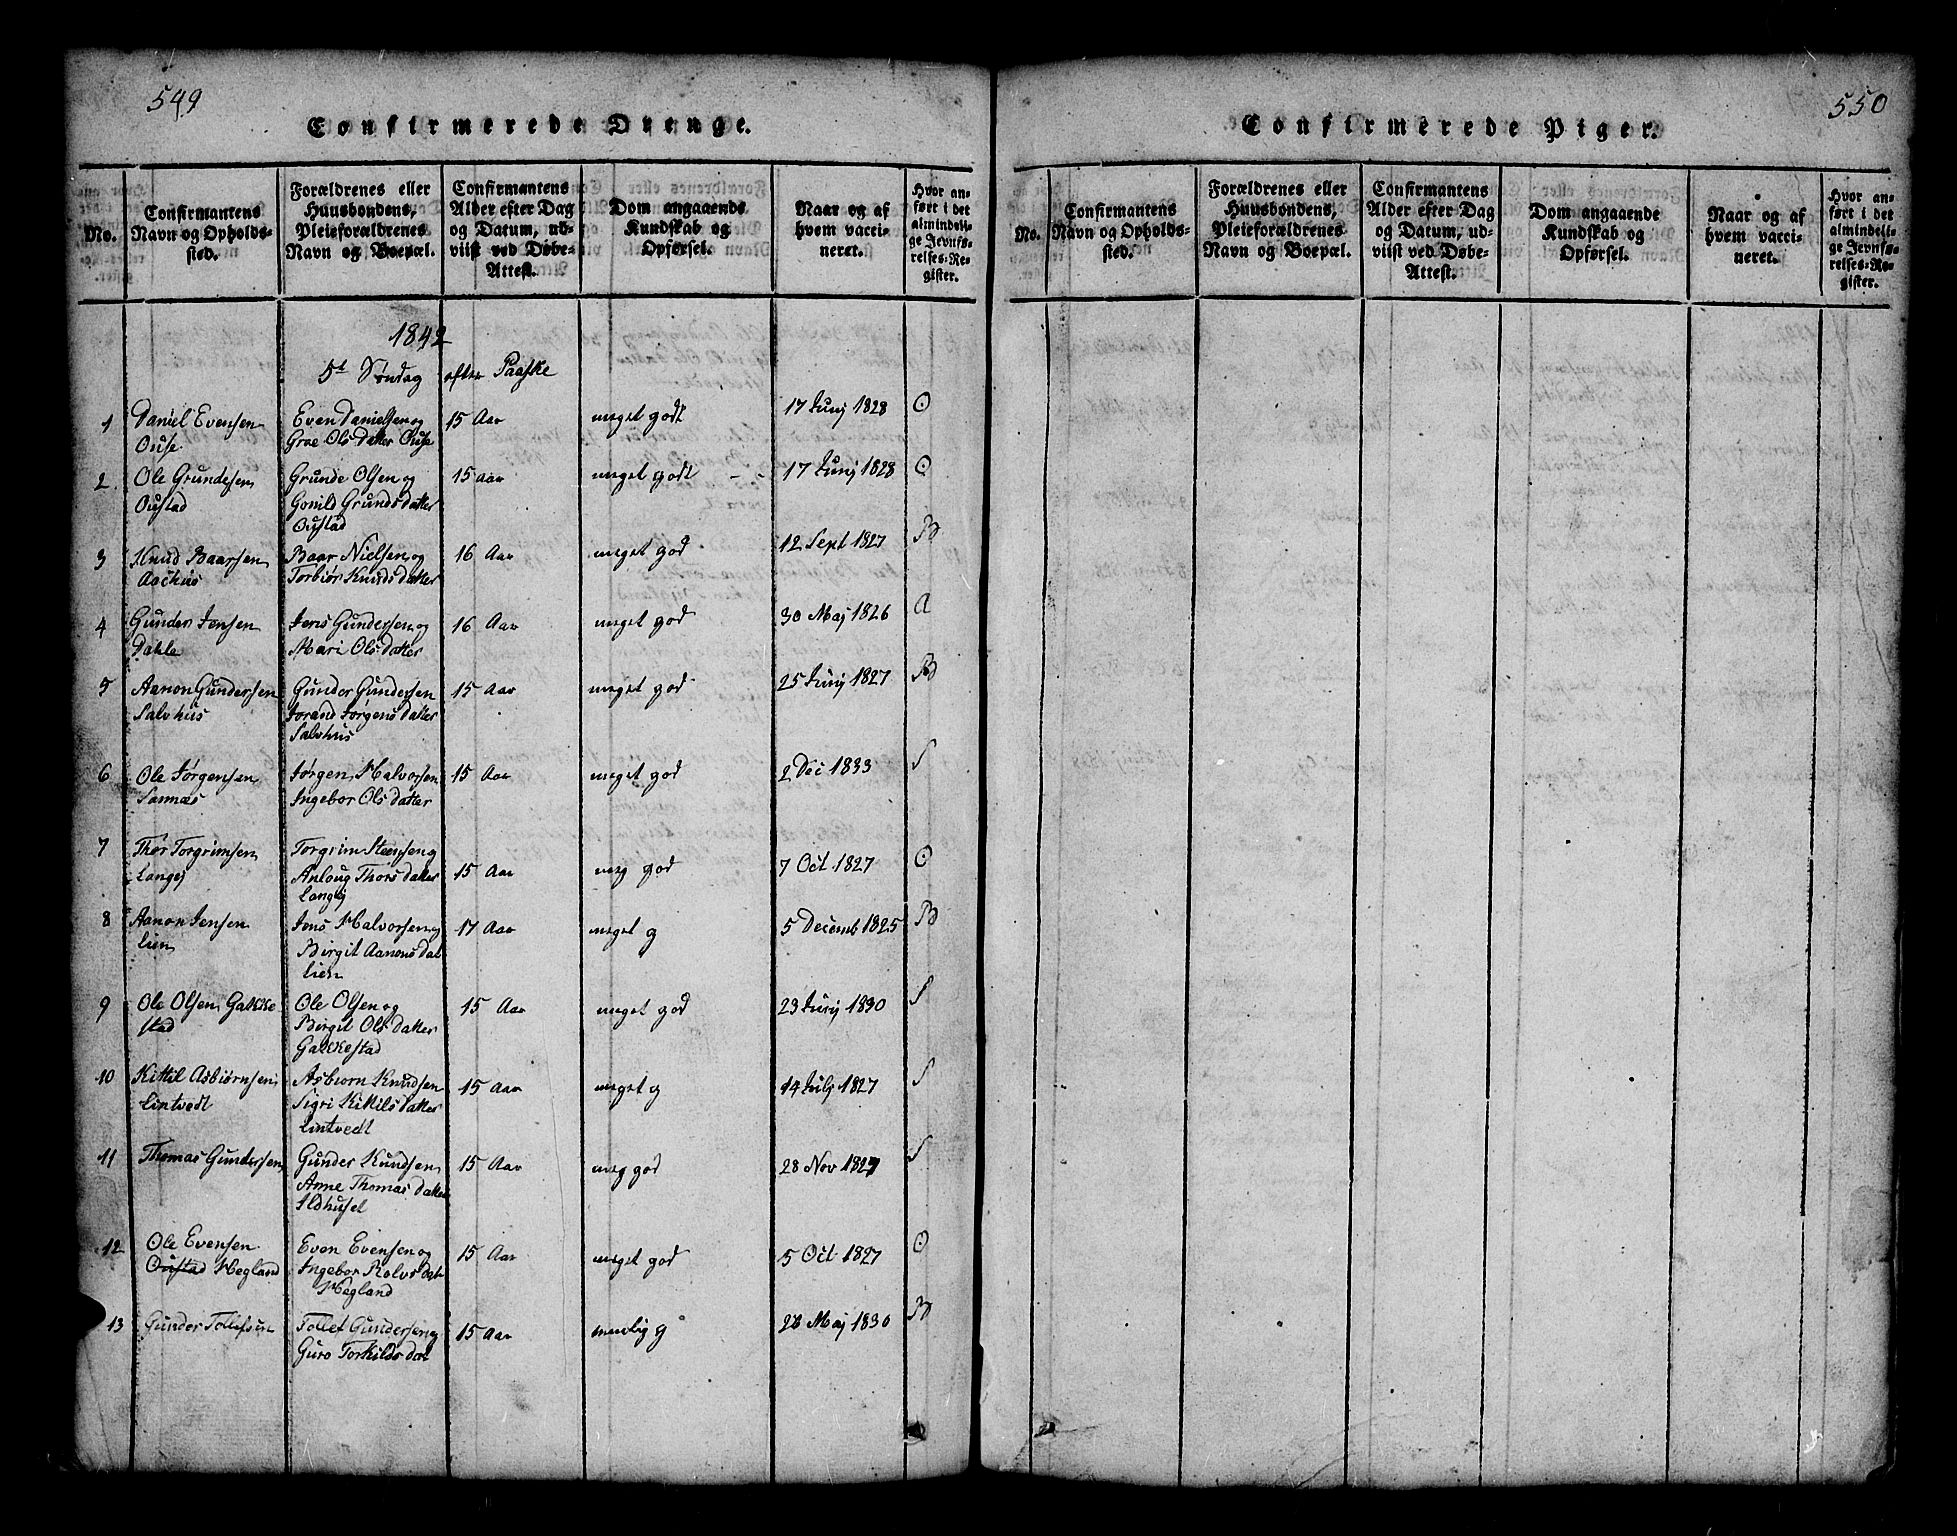 549
Confirmerede Drenge.
No.
Confirmantens Navn og Opholds-sted.
Forældrenes eller Huusbondens, Pleieforældrenes Navn og Boepæl.
Confirmantens Alder efter Dag og Datum, ud-viist ved Døbe-Attest.
Dom angaaende Kundskab og Opførsel.
Naar og af hvem vacci-neret.
Hvor an-ført i det almindeli-ge Jevnfø-relses-Re-gister.
1842
5t Søndag efter Paaske
1 Daniel Evensen Even Danielsen og 15 Aar meget godt 17 Junj 1828 O
Ouse Groe Olsdatter Ouse
2 Ole Grundesen Grunde Olsen og 15 aar meget godt - 17 Junj 1828 O
Oustad Gonild Grundsdatter
Oustad
3 Knud Baarsen Baar Nielsen og 16 Aar meget god 12 Sept 1827 B
Aachus Torbiør Knudsdatter
4 Gunder Jensen Jens Gundersen og 16 Aar meget god 30 Maj 1826 A
Dahle Mari Olsdatter
5 Aanon Gundersen Gunder Gundersen 15 Aar meget god 25 Junj 1827 B
Salvhus Jorand Jørgensdatter
Salvhus
6 Ole Jørgensen Jørgen Halvorsen 15 Aar meget god 2 Dec 1833 S
Sannæs Ingebor Olsdatter
7 Thor Torgrimsen Torgrim Steensen og 15 Aar meg god 7 Oct 1827 O
Langej Anloug Thorsdatter
Langej
8 Aanon Jensen Jens Halvorsen og 17 Aar meget g 5 Decemb 1825 B
Lien Birgit Aanonsdat
Lien
9 Ole Olsen Gakke Ole Olsen og 15 Aar meget god 23 Junj 1830 S
stad Birgit Olsdatter
Gakkestad
10 Kittil Asbiørnsen Asbiørn Knudsen 15 Aar meget g 14 Julj 1827 S
Lintvedt Sigri Kittilsdatter
Lintvedt
11 Thomas Gundersen Gunder Kundsen 15 Aar meg god 28 Nov 1827 S
Anne Thomasdatter
Ildhusel
12 Ole Evensen Even Evensen og 15 Aar meget god 5 Oct 1827 O
Oustad Hegland Ingebor Rolvsdat
Hegland
13 Gunder Tollefsen Tollef Gundersen og 15 Aar g 28 Maj 1830 B
Guro Torkildsdat
550
Confirmerede Piger.
No.
Confirmantens Navn og Opholds-sted.
Forældrenes eller Huusbondens, Pleieforældrenes Navn og Boepæl.
Confirmantens Alder efter Dag og Datum, ud-viist ved Døbe-Attest.
Dom angaaende Kundskab og Opførsel.
Naar og af hvem vacci-neret.
Hvor an-ført i det almindeli-ge Jevnfø-relses-Re-gister.